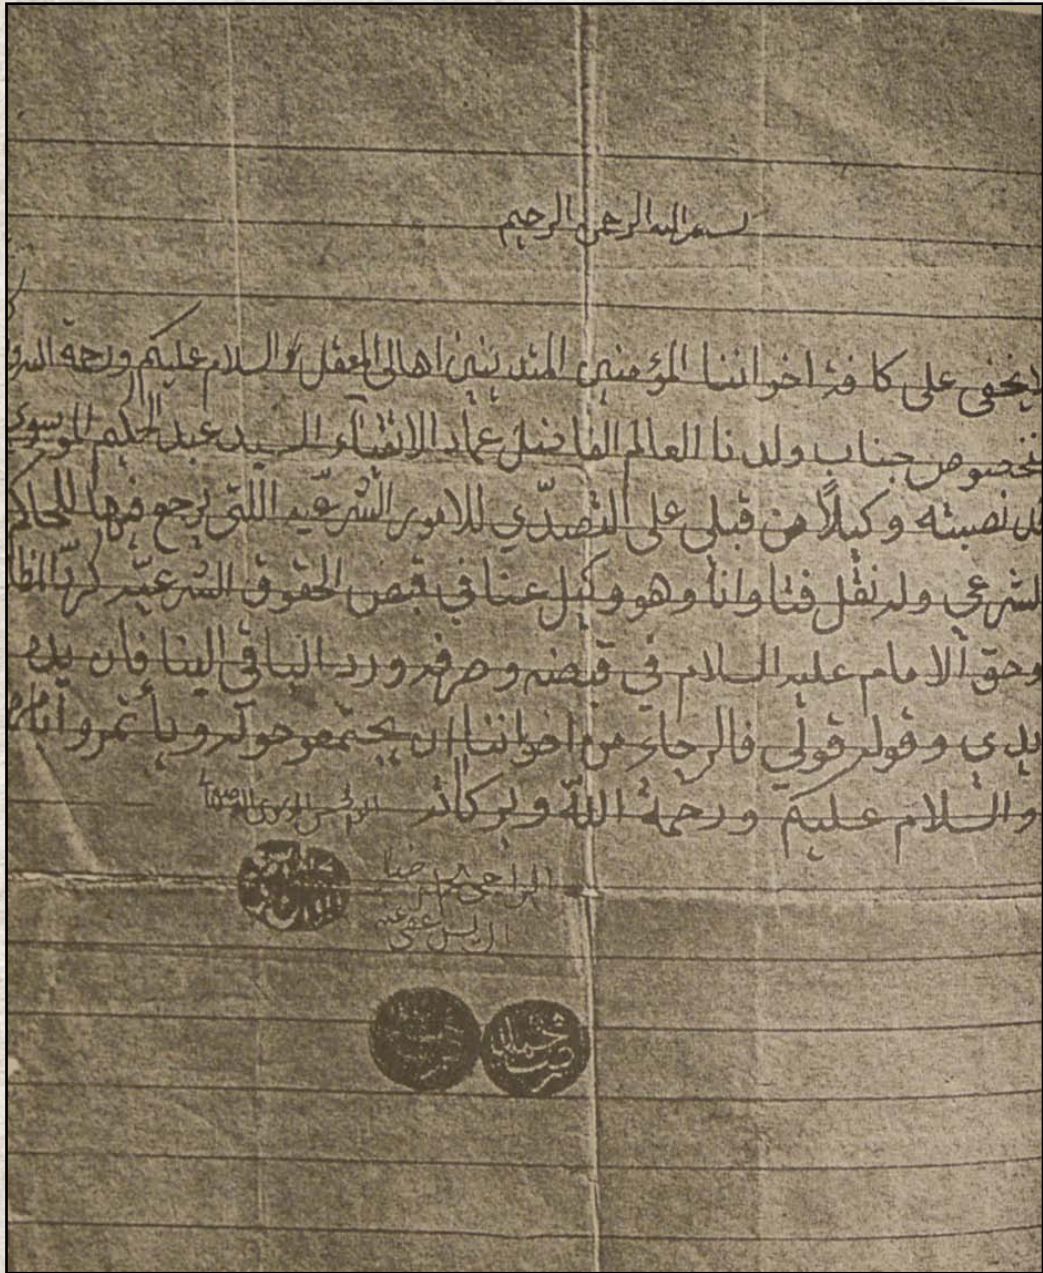 بسم الله الرحمن الرحيم
لا يخفى على كافة اخواننا المؤمنين المتدينين اهالي المعقل السلام عليكم ورحمة الله و
بخصوص جناب ولدنا العالم الفاضل عماد الاتقياء السيد عبد الحكيم الموسوي
نصبته وكيلاً من قبلي على التصدّي للامور الشرعيّه اللتي يرجع فيها للحاكم
الشرعي وله نقل فتاوانا وهو وكيل عنا في قبض الحقوق الشرعيّه كردّ المظا
وحق الامام عليه السلام في قبضه وصرفه ورد الباقي الينا فان يده
يدي وقوله قولي فالرجاء من اخواننا ان يجتمعو حوله ويأتمرو
والسلام عليكم ورحمة اللّه وبركاته
الراجي محمد رضا
ال يس عفي عنه
محمد رضا